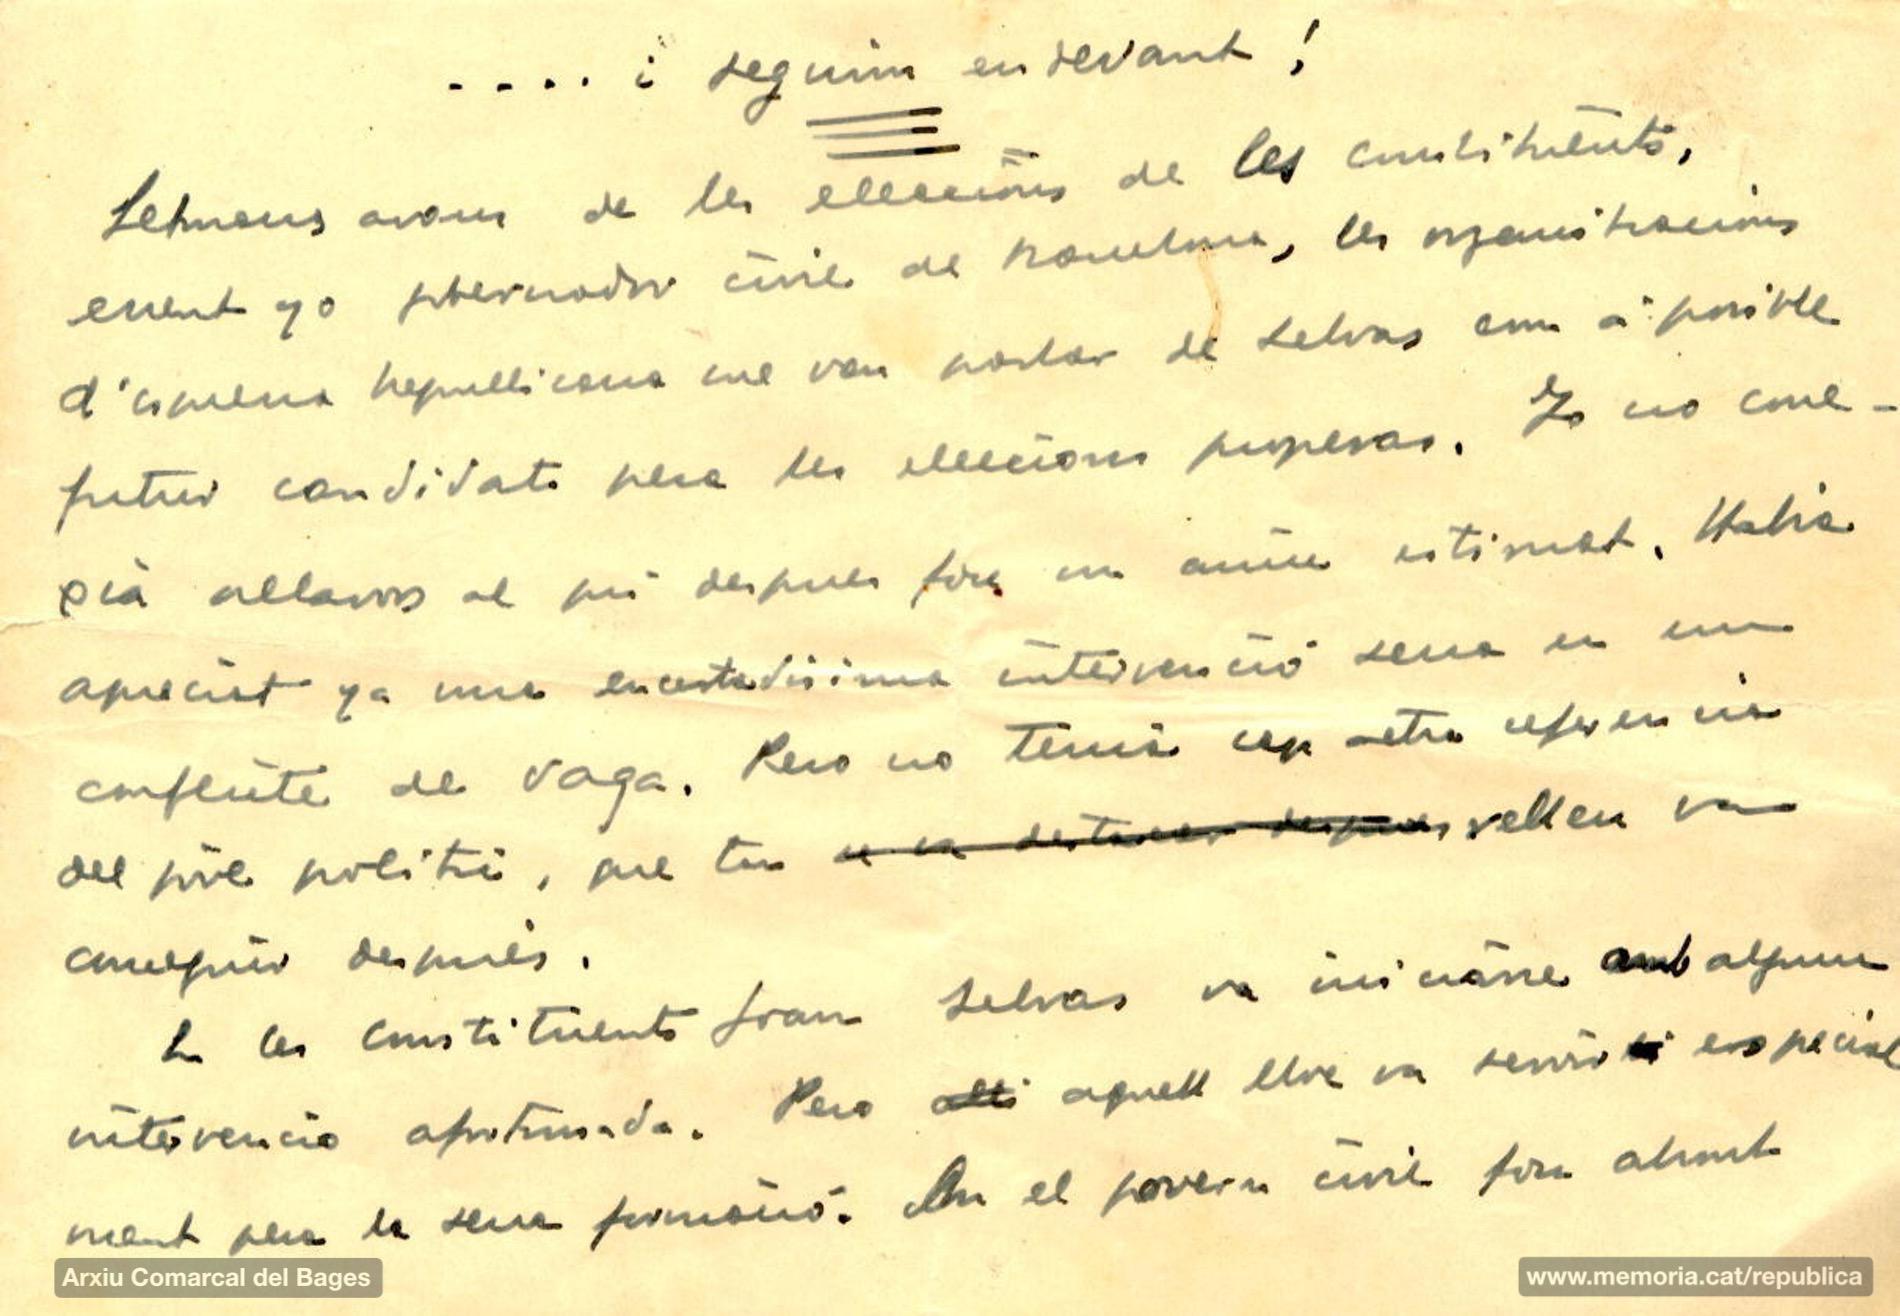 .... i seguim endevant!
Setmans avans de les eleccions de les constituents,
essent yo gobernador civil de Barcelona, les organitzacions
d'esquerra republicana me van parlar de Selvas com a posible
futur candidato pera les eleccions properas. Yo no cone-
xia allavors al qui despues fou un amic estimat. Habia
apreciat ya una encertadisima intervenció seua en un
conflicte de vaga. Pero no tenia cap altra referencia
del jove politic, que tan relleu va
conseguir després.
En les Constituents Joan Selvas va iniciarse amb alguna
intervencio afortunada. Pero aquell lloc va servir especial
ment pera la seua formació. En el govern civil fou aband
Arxiu Comarcal del Bages
www.memoria.cat/republica